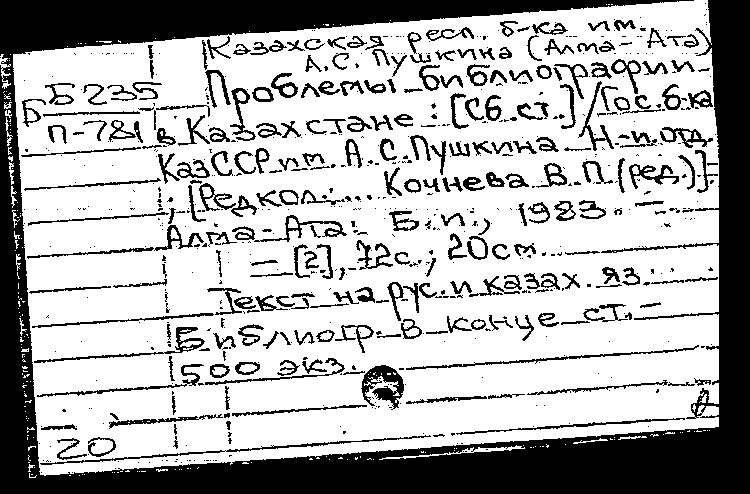 Казахская респ. б-ка им.
А.С. Пушкина (Алма-Ата)
Проблемы библиографии
Б Б235
П-781 в Казахстане : [Сб. ст.] / Гос. б-ка
КазССР им. А.С. Пушкина. Н-и. отд.
; [Редкол.: ... Кочнева В.П. (ред.)].
Алма-Ата: Б. и., 1983. –
– [2], 72 с.; 20 см.
Текст на рус. и казах. яз.
Библиогр. в конце ст. –
500 экз.
20